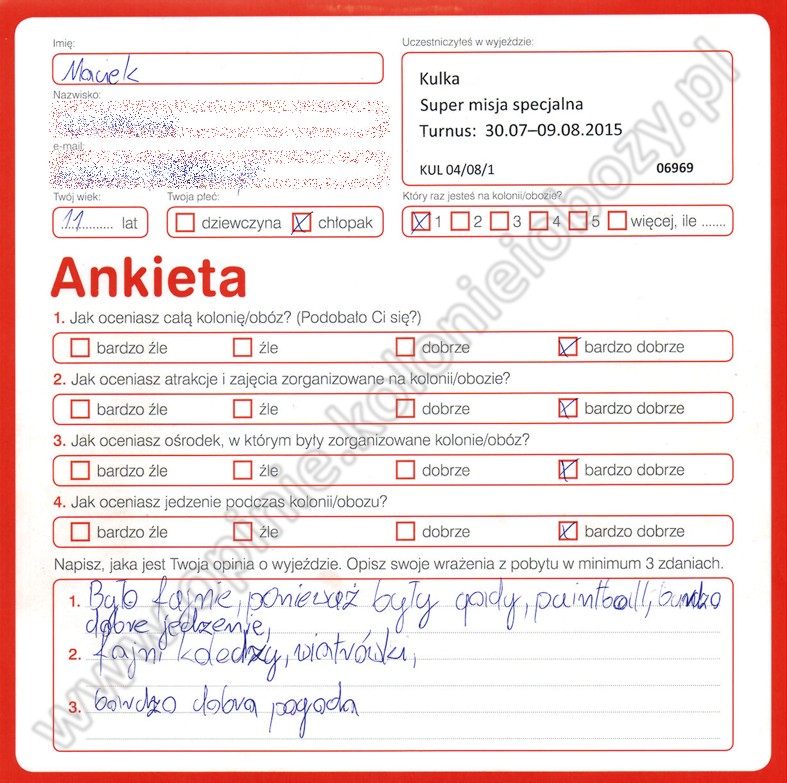 Imię:
Maciek
Nazwisko:
e-mail:
Twój wiek:
11 lat
Twoja płeć:
dziewczyna chłopak
Uczestniczyłeś w wyjeździe:
Kulka
Super misja specjalna
Turnus: 30.07–09.08.2015
KUL 04/08/1 06969
Który raz jesteś na kolonii/obozie?
1 2 3 4 5 więcej, ile .......
Ankieta
1. Jak oceniasz całą kolonię/obóz? (Podobało Ci się?)
bardzo źle źle dobrze bardzo dobrze
2. Jak oceniasz atrakcje i zajęcia zorganizowane na kolonii/obozie?
bardzo źle źle dobrze bardzo dobrze
3. Jak oceniasz ośrodek, w którym były zorganizowane kolonie/obóz?
bardzo źle źle dobrze bardzo dobrze
4. Jak oceniasz jedzenie podczas kolonii/obozu?
bardzo źle źle dobrze bardzo dobrze
Napisz, jaka jest Twoja opinia o wyjeździe. Opisz swoje wrażenia z pobytu w minimum 3 zdaniach.
1. Było fajnie, ponieważ były qady, paintball, bardzo
dobre jedzenie,
2. fajni koledzy, wiatrówki,
3. bardzo dobra pogoda
www.opinie.kolonieiobozy.pl